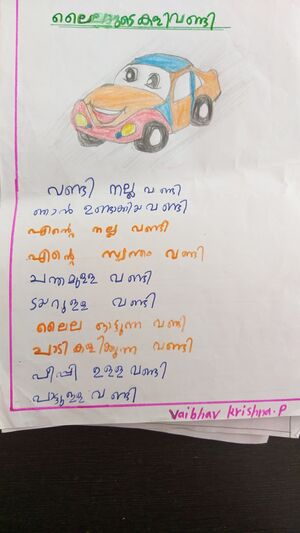 ലൈലയുടെ കളിവണ്ടി
വണ്ടി നല്ല വണ്ടി
ഞാൻ ഉണ്ടാക്കിയ വണ്ടി
എന്റെ നല്ല വണ്ടി
എന്റെ സ്വന്തം വണ്ടി
ചന്തമുള്ള വണ്ടി
ടയറുള്ള വണ്ടി
ലൈല ഓട്ടുന്ന വണ്ടി
പാടി കളിക്കുന്ന വണ്ടി
പീപ്പി ഉള്ള വണ്ടി
വണ്ടി
Vaibhav Krishna.P